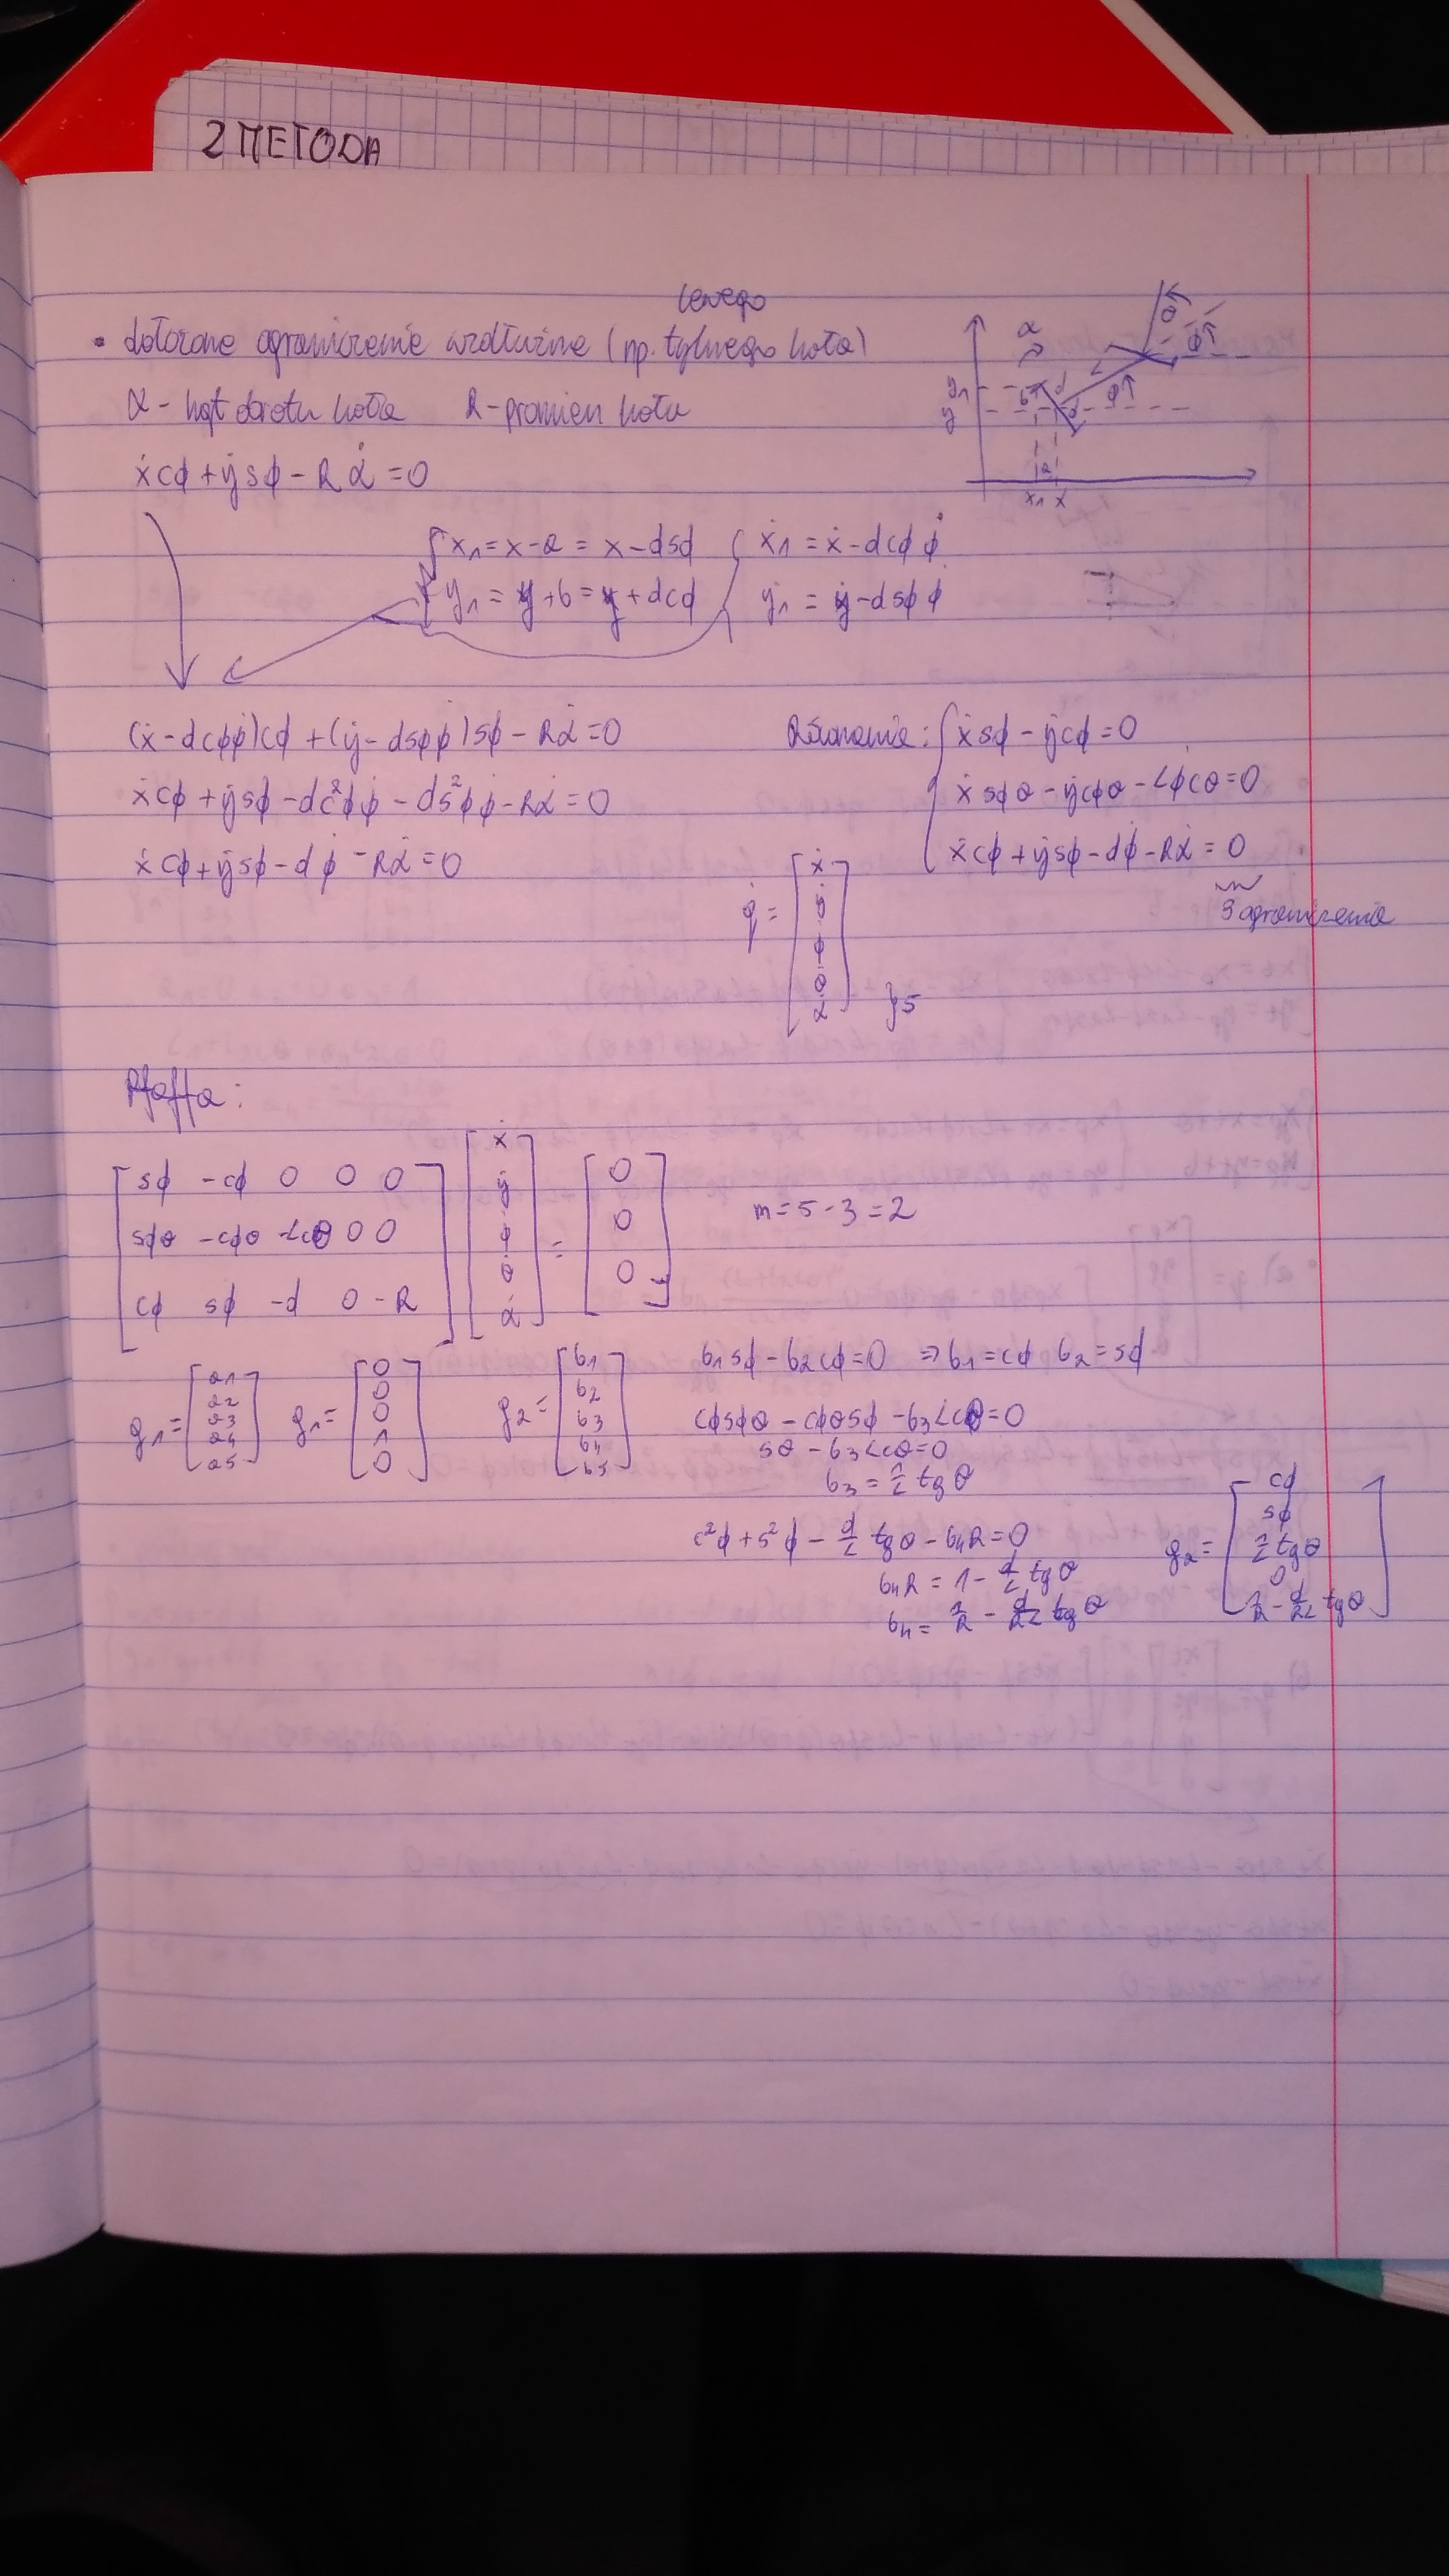 2 METODA
lewego
• dołożone ograniczenie wzdłużne (np. tylnego koła)
α - kąt obrotu koła R - promień koła
ẋcϕ + ẏsϕ - Rα̇ = 0
α θ ϕ L d b ϕ
y₁
y
a
x₁ x
x₁ = x - a = x - dsϕ ẋ₁ = ẋ - dcϕ ϕ̇
y₁ = y + b = y + dcϕ ẏ₁ = ẏ - dsϕ ϕ̇
(ẋ - dcϕϕ̇)cϕ + (ẏ - dsϕϕ̇)sϕ - Rα̇ = 0
ẋcϕ + ẏsϕ - dc²ϕϕ̇ - ds²ϕϕ̇ - Rα̇ = 0
ẋcϕ + ẏsϕ - dϕ̇ - Rα̇ = 0
Równanie: ẋsϕ - ẏcϕ = 0
ẋsϕθ - ẏcϕθ - Lϕ̇cθ = 0
ẋcϕ + ẏsϕ - dϕ̇ - Rα̇ = 0
3 ograniczenia
q̇ = [ẋ ẏ ϕ̇ θ̇ α̇] }5
Pfaffa:
[sϕ -cϕ 0 0 0
sϕθ -cϕθ -Lcθ 0 0
cϕ sϕ -d 0 -R] [ẋ ẏ ϕ̇ θ̇ α̇] = [0 0 0]
m = 5 - 3 = 2
g₁ = [a1 a2 a3 a4 a5] g₁ = [0 0 0 1 0] g₂ = [b1 b2 b3 b4 b5]
b₁sϕ - b₂cϕ = 0 ⇒ b₁ = cϕ b₂ = sϕ
cϕsϕθ - cϕθsϕ - b₃Lcθ = 0
sθ - b₃Lcθ = 0
b₃ = 1/L tgθ
c²ϕ + s²ϕ - d/L tgθ - b₄R = 0
b₄R = 1 - d/L tgθ
b₄ = 1/R - d/RL tgθ
g₂ = [cϕ sϕ 1/L tgθ 0 1/R - d/RL tgθ]